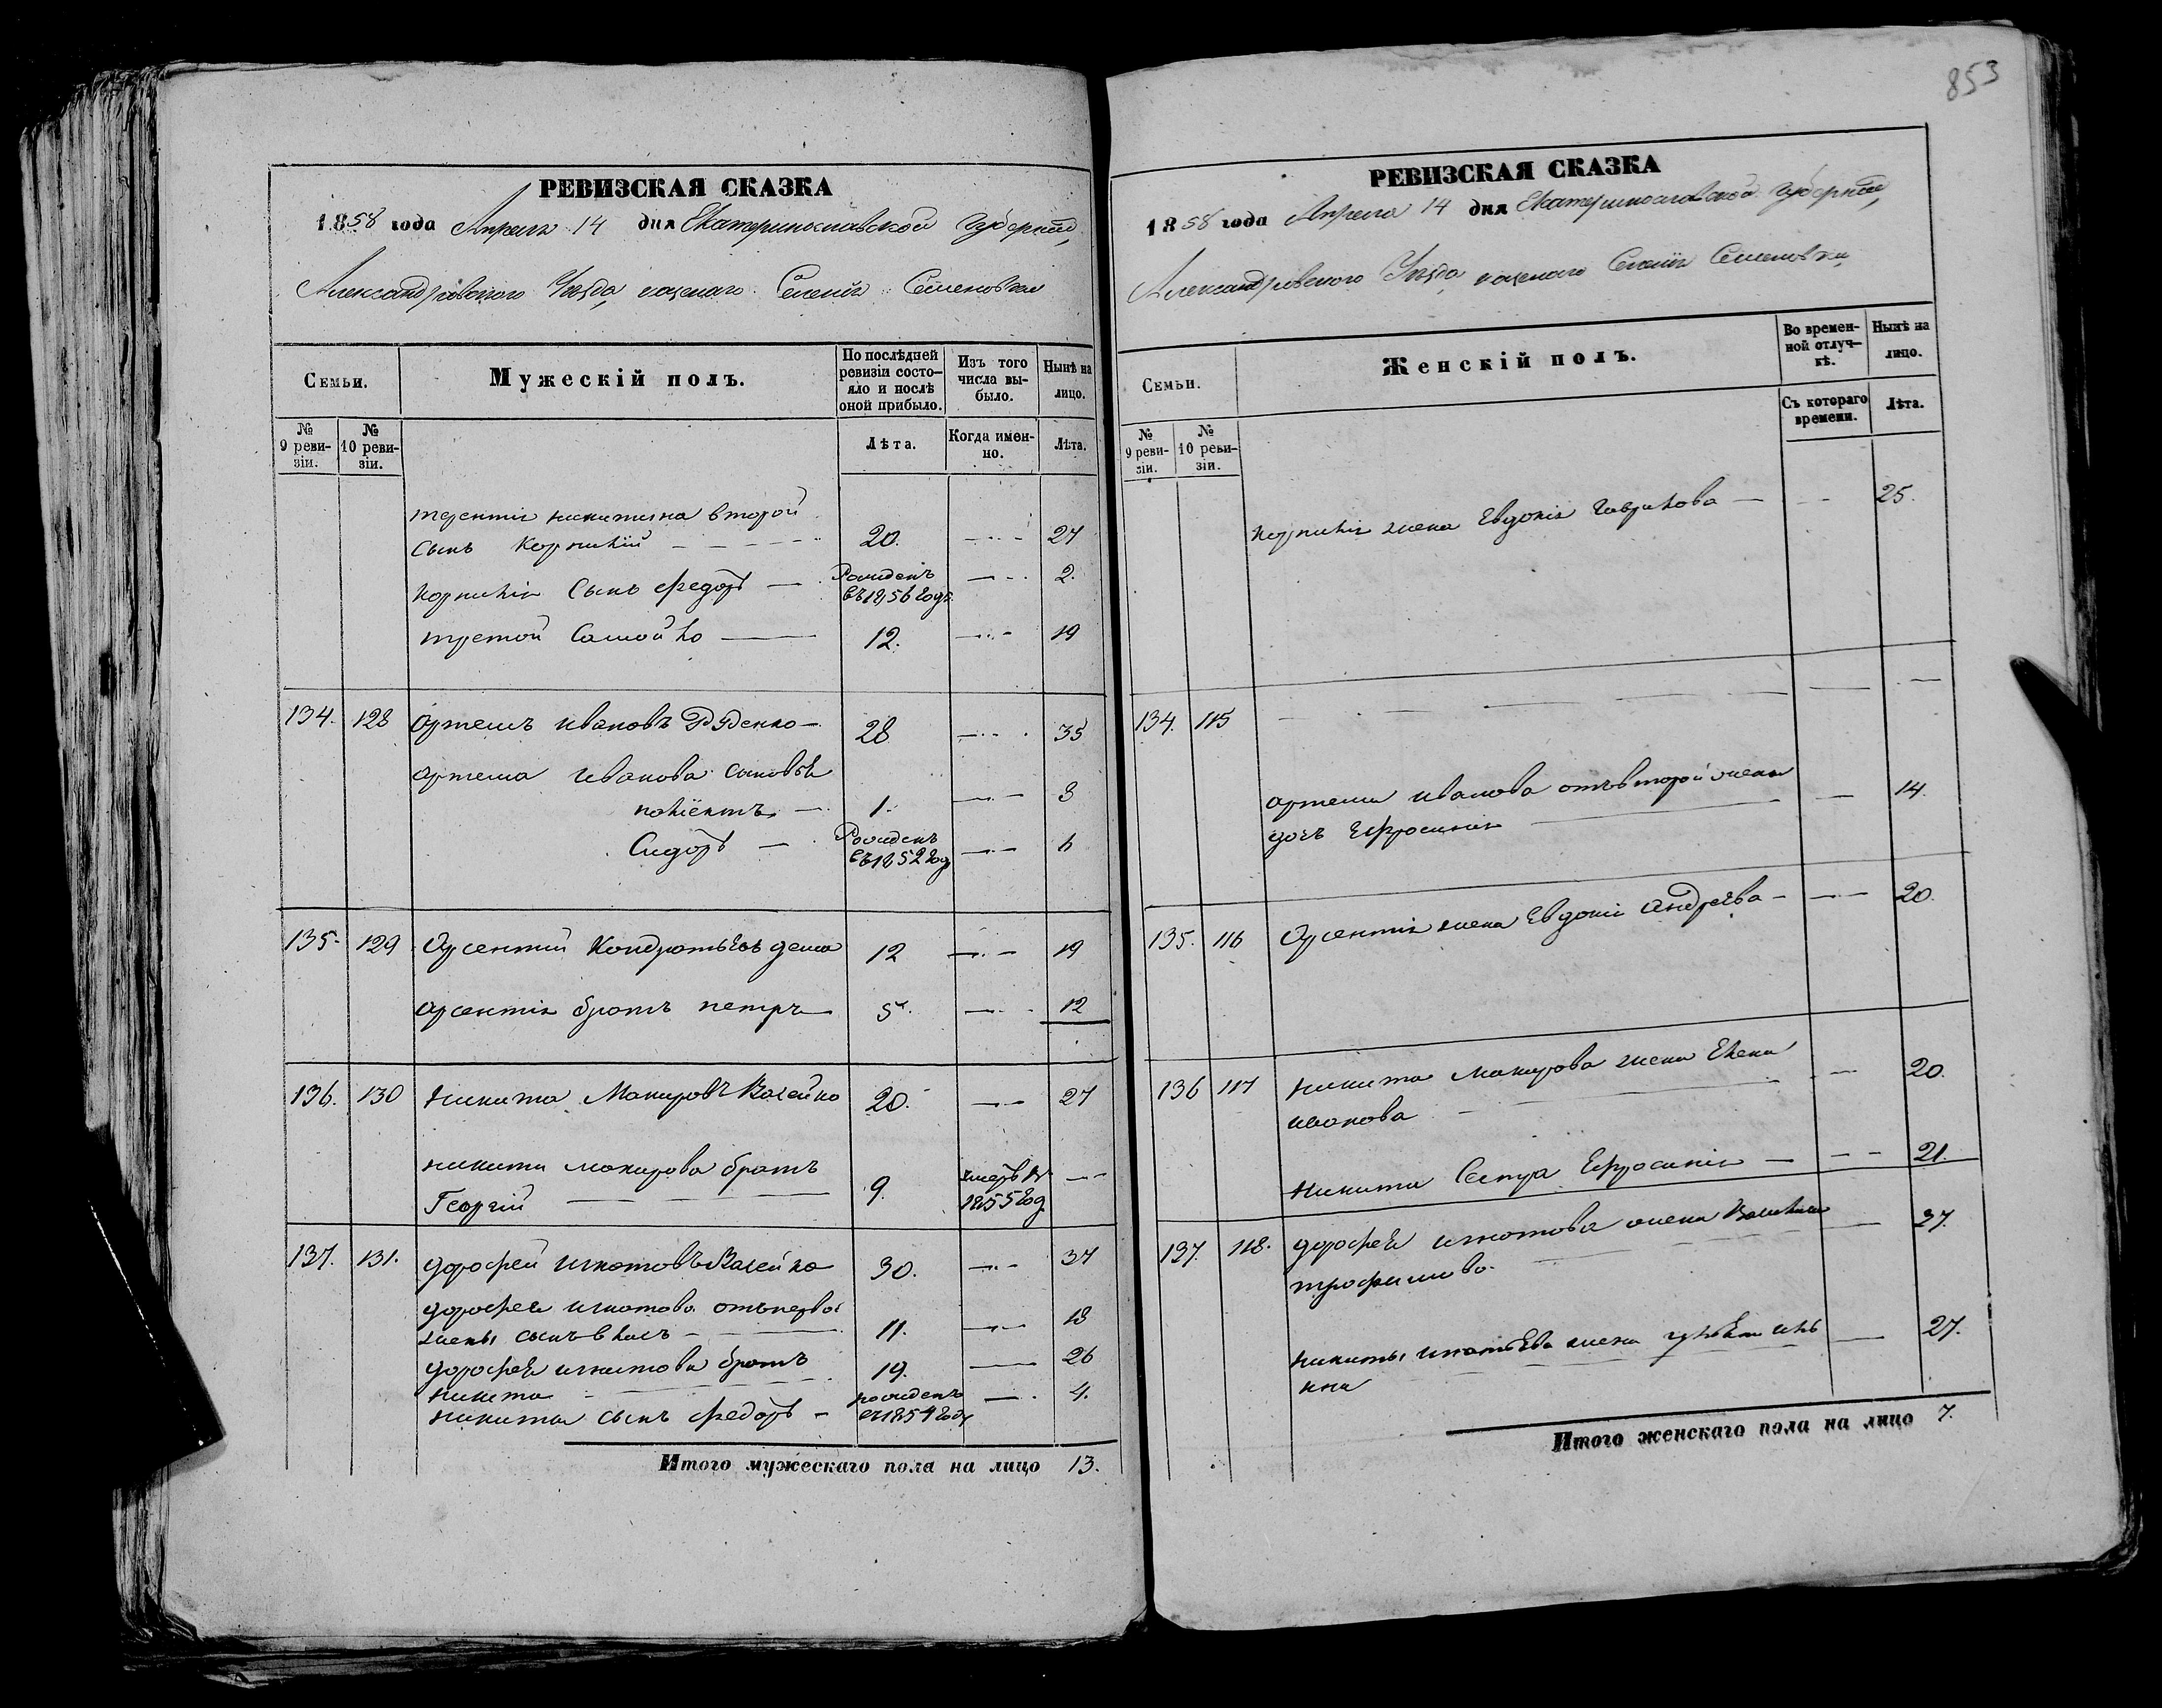 853
РЕВИЗСКАЯ СКАЗКА
1858 года Апреля 14 дня Екатеринославской губернии,
Александровского Уезда казенаго Селенія Семеновки
Семьи.
Мужескій полъ.
По послѣдней ревизіи состояло и послѣ оной прибыло.
Изъ того числа выбыло.
Нынѣ на лицо.
№ 9 ревизіи.
№ 10 ревизіи.
Лѣта.
Когда именно.
Лѣта.
терентія никитина второй
сынъ Корнилій 20. 27
корнилія Сынъ федоръ Рожденъ въ 1856 годѣ 2.
третой Самойло 12. 19
134. 128 Артемъ Ивановъ 28 35
артема Иванова сыновья
1. 8
Сидоръ Рожденъ въ 1852 год 6
135. 129 Арсентий Кондратьевъ 12 19
арсентія братъ петръ 5. 12
136. 130 Никита Макаровъ 20. 27
никиты макарова братъ
Георгий 9. умеръ въ 1855 год
137. 131. дорофей игнатовъ 30. 37
дорофея игнатова отъ первой
жены сынъ власъ 11. 18
дорофея игнатова братъ
никита 19. 26
никиты сынъ федоръ рожденъ въ 1854 году 4.
Итого мужескаго пола на лицо 13.
РЕВИЗСКАЯ СКАЗКА
1858 года Апреля 14 дня Екатеринославской губернии,
Александровского Уезда казенаго Селенія Семеновки
Семьи.
Женскій полъ.
Во временной отлучкѣ.
Нынѣ на лицо.
№ 9 ревизіи.
№ 10 ревизіи.
Съ котораго времени.
Лѣта.
корнилія жена Евдокія Гаврилова 25.
134. 115
артема иванова отъ второй жены
дочь Ефросинія 14.
135. 116 Арсентія жена Евдокія Андреева 20.
136 117 никиты макарова жена Елена
иванова 20.
никиты Сестра Ефросинія 21.
137. 118. дорофея игнатова жена
трофимова 37.
никиты игнатьева жена
27.
Итого женскаго пола на лицо 7.